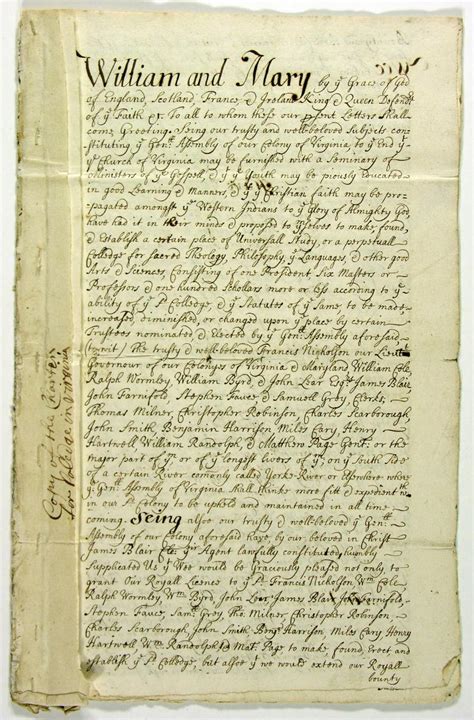 William and Mary by yᵉ Grace of God
of England, Scotland, France, & Ireland King & Queen Defendrs
of yᵉ Faith &c. To all to whom these our psent Letters Shall
come Greeting. Seing our trusty and well-beloved Subjects con-
stituting yᵉ Genˡˡ Assembly of our Colony of Virginia to yᵉ End yᵗ
yᵉ Church of Virginia may be furnished with a Seminary of
Ministers of yᵉ Gospell, & yᵗ yᵉ Youth may be piously Educated
in good Learning & Manners, & yᵗ yᵉ Christian faith may be pro-
pagated amongst yᵉ Western Indians to yᵉ Glory of Almighty God
have had it in their minds & proposed to yᵐselves to make, found,
& Establish a certain place of Universall Study, or a perpetuall
Colledge for Sacred Theology, Philosophy, yᵉ Languages, & other good
Arts & Sciences, Consisting of one President, Six Masters or
Professors & one hundred Schollars more or less according to yᵉ
ability of yᵉ Sᵈ Colledge, & yᵉ Statutes of yᵉ Same, to be made,
increased, diminished, or changed upon yᵉ place by certain
Trustees nominated & Elected by yᵉ Genˡˡ Assembly aforesaid
(towit) The trusty & well-beloved Francis Nicholson our Lieuᵗ
Governour of our Colonyes of Virginia & Maryland, William Cole
Ralph Wormley, William Byrd, & John Lear Esqʳˢ James Blair,
John Farnifold, Stephen Fauce, & Samuell Grey, Clerks;
Thomas Milner, Christopher Robinson, Charles Scarborough,
John Smith Benjamin Harrison, Miles Cary Henry
Hartwell William Randolph, & Matthew Page Gentˢ: or the
major part of yᵐ or of yᵉ longest livers of yᵐ: on yᵉ South Side
of a certain River comonly called Yorke River or elsewhere where
yᵉ Genˡˡ Assembly of Virginia Shall thinke more fitt & expedient w
in our Sᵈ Colony to be upheld and maintained in all time
coming. Seing alsoe our trusty & well-beloved yᵉ Genˡˡ
Assembly of our Colony aforesaid have, by our beloved in Christ
James Blair Clr. yʳ Agent lawfully constituted, humbly
Supplicated Us yᵗ Wee would be Graciously pleased not only to
grant Our Royall Licence to yᵉ Sᵈ Francis Nicholson Wᵐ Cole,
Ralph Wormley, Wᵐ Byrd, John Lear James Blair John Farnifold,
Stephen Fauce, Samˡ Grey, Tho. Milner, Christopher Robinson,
Charles Scarborough, John Smith, Benj Harrison, Miles Cary Henry
Hartwell Wᵐ Randolph & Mat. Page to make found, Erect and
establish yᵉ Sᵈ Colledge, but alsoe yᵗ we would extend our Royall
bounty
Copy of the Charter
for Colledge in Virginia